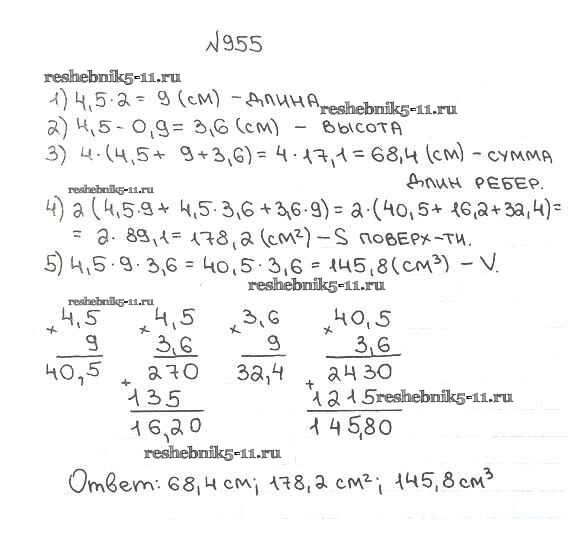 №955
reshebnik5-11.ru
1) 4,5·2= 9 (см) - ДЛИНА
reshebnik5-11.ru
2) 4,5 - 0,9= 3,6 (см) - ВЫСОТА
3) 4·(4,5+ 9+3,6)= 4·17,1=68,4 (см) - СУММА
ДЛИН РЕБЕР.
reshebnik5-11.ru
4) 2(4,5·9+ 4,5·3,6+3,6·9)= 2·(40,5+16,2+32,4)=
= 2·89,1=178,2 (см²) - S ПОВЕРХ-ТИ.
5) 4,5·9·3,6=40,5·3,6=145,8(см³) - V.
reshebnik5-11.ru
reshebnik5-11.ru
4,5 4,5 3,6 40,5
× × × ×
9 3,6 9 3,6
40,5 270 32,4 2430
+ +
135 1215
reshebnik5-11.ru
16,20 145,80
reshebnik5-11.ru
Ответ: 68,4 см; 178,2 см²; 145,8 см³